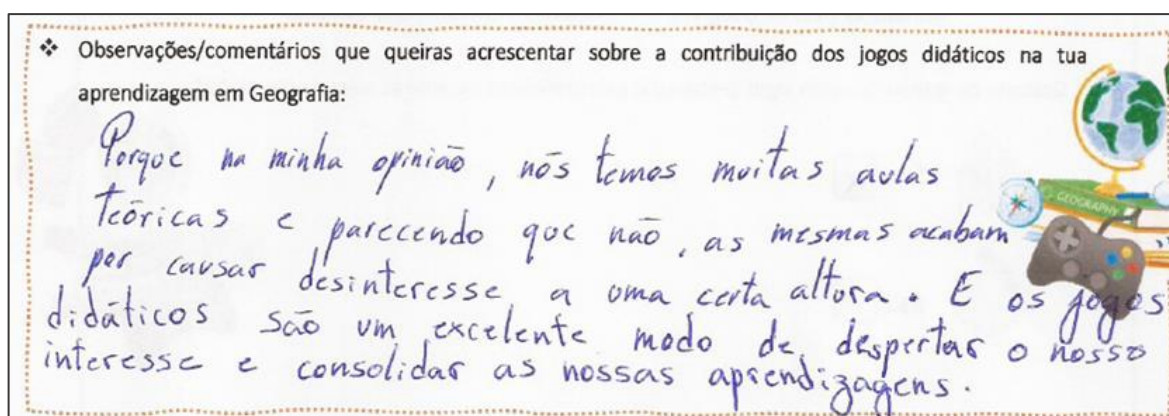 ❖ Observações/comentários que queiras acrescentar sobre a contribuição dos jogos didáticos na tua
aprendizagem em Geografia:
Porque na minha opinião, nós temos muitas aulas
teóricas e parecendo que não, as mesmas acabam
por causar desinteresse a uma certa altura. E os jogos
didáticos são um excelente modo de despertar o nosso
interesse e consolidar as nossas aprendizagens.
GEOGRAPHY